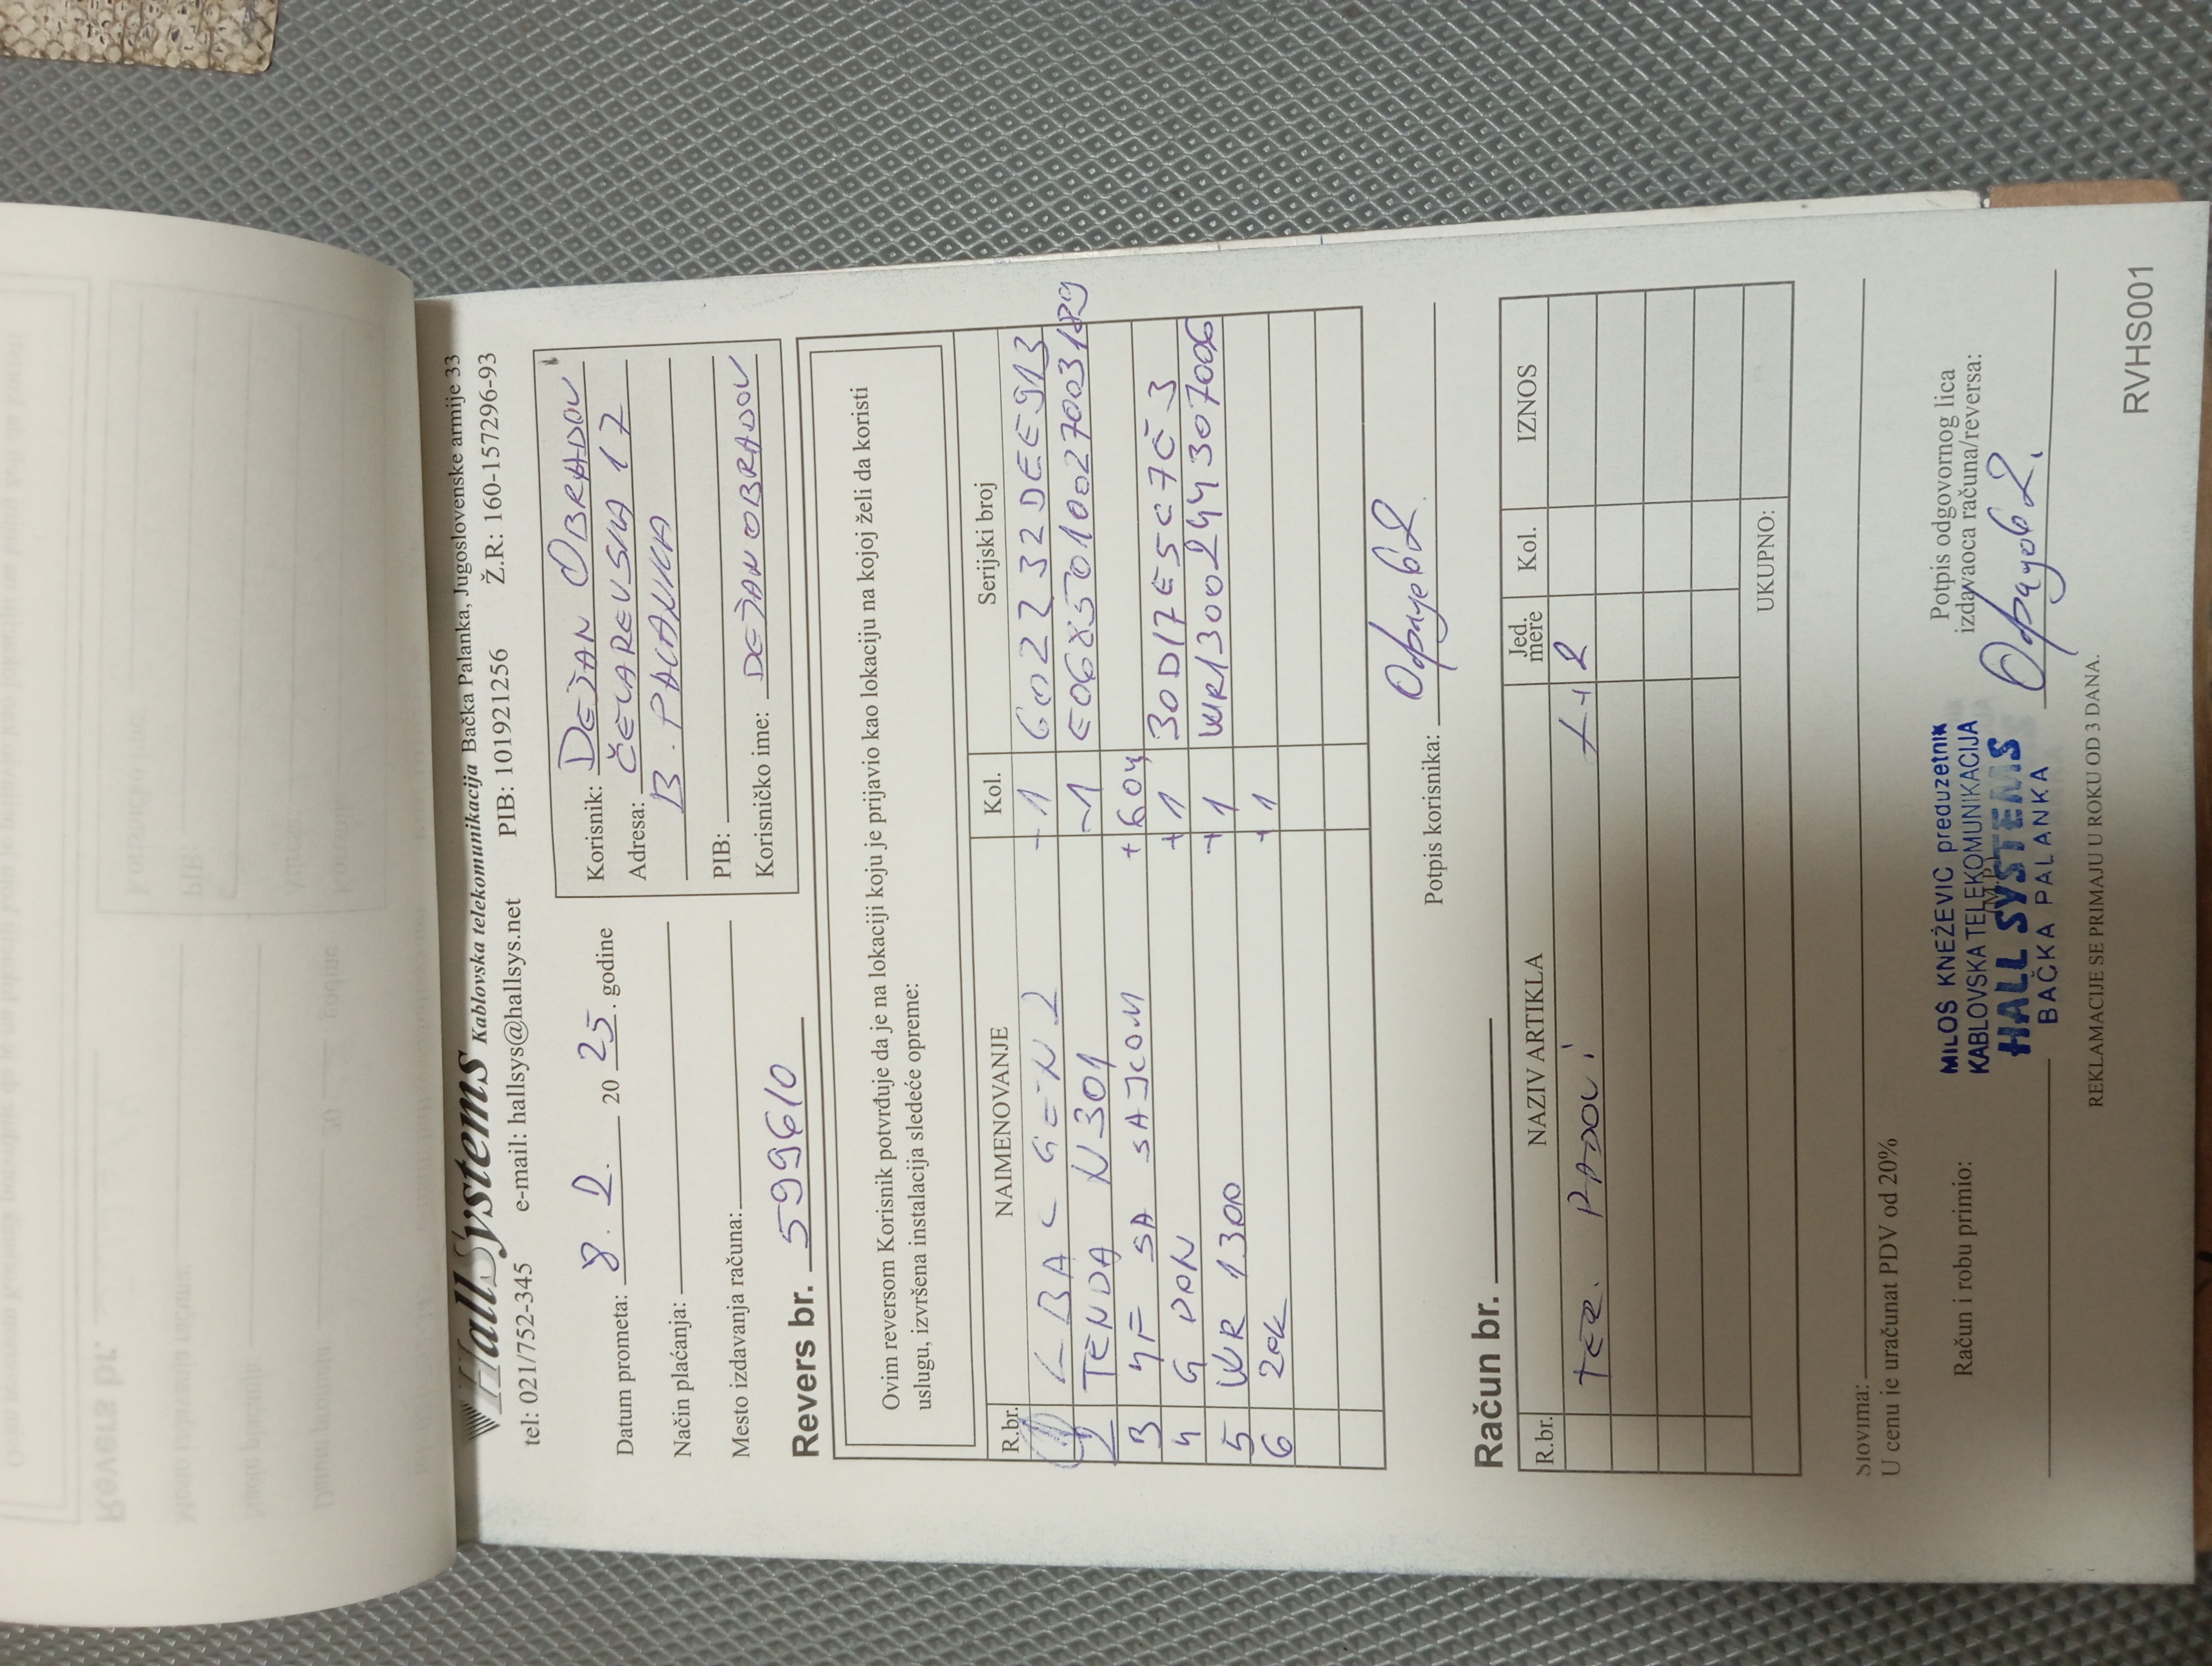 HallSystems Kablovska telekomunikacija Bačka Palanka, Jugoslovenske armije 33
tel: 021/752-345 e-mail: hallsys@hallsys.net PIB: 101921256 Ž.R: 160-157296-93
Datum prometa: 8. 2. 20 25. godine
Način plaćanja:
Mesto izdavanja računa:
Korisnik: DEJAN OBRADOV
Adresa: ČELAREVSKA 17
B. PALANKA
PIB:
Korisničko ime: DEJANOBRADOV
Revers br. 59961O
Ovim reversom Korisnik potvrđuje da je na lokaciji koju je prijavio kao lokaciju na kojoj želi da koristi
uslugu, izvršena instalacija sledeće opreme:
R.br. NAIMENOVANJE Kol. Serijski broj
1 LBAC GEN2 -1 602232DEE913
2 TENDA N301 -1 E0685010027003189
3 4F SA SAJLOM +60m
4 GPON +1 30D17E5C7C3
5 WR 1300 +1 WR1300244307006
6 20k +1
Potpis korisnika:
Račun br.
R.br. NAZIV ARTIKLA Jed. mere Kol. IZNOS
TER. RADOVI
UKUPNO:
Slovima:
U cenu je uračunat PDV od 20%
Račun i robu primio:
MILOŠ KNEŽEVIĆ preduzetnik
KABLOVSKA TELEKOMUNIKACIJA
(M.P.)
HALL SYSTEMS
BAČKA PALANKA
Potpis odgovornog lica
izdavaoca računa/reversa:
REKLAMACIJE SE PRIMAJU U ROKU OD 3 DANA.
RVHS001